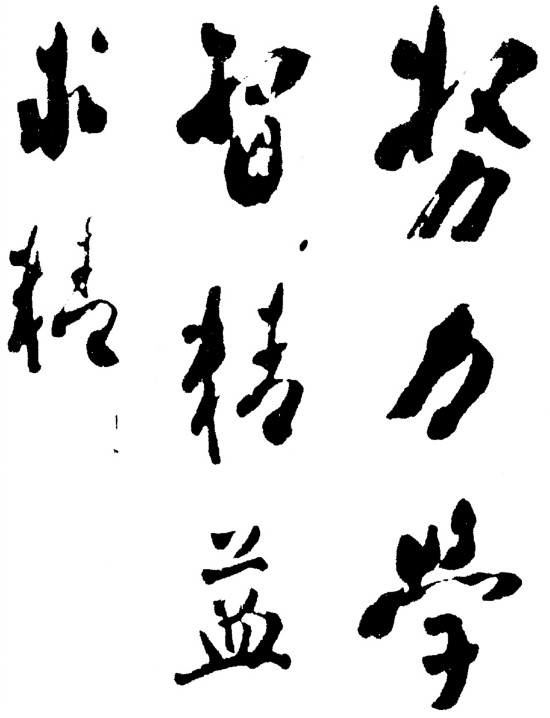 努力學
習精益
求精